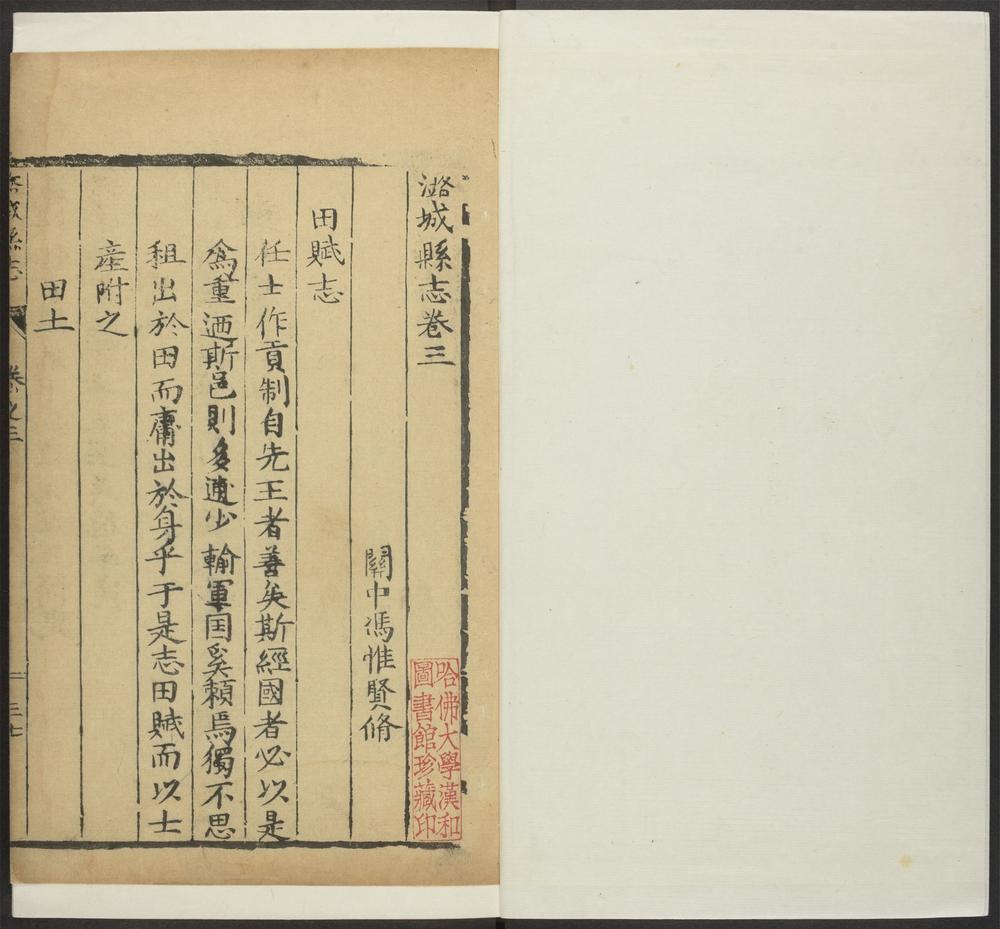 潞城縣志卷三
關中馮惟賢脩
田賦志
任土作貢制自先王者善矣斯經國者必以是
爲重迺斯邑則多逋少輸軍国奚賴焉獨不思
租出於田而庸出於身乎于是志田賦而以士
產附之
田土
潞城縣志
卷之三
三七
哈佛大學漢和
圖書館珍藏印